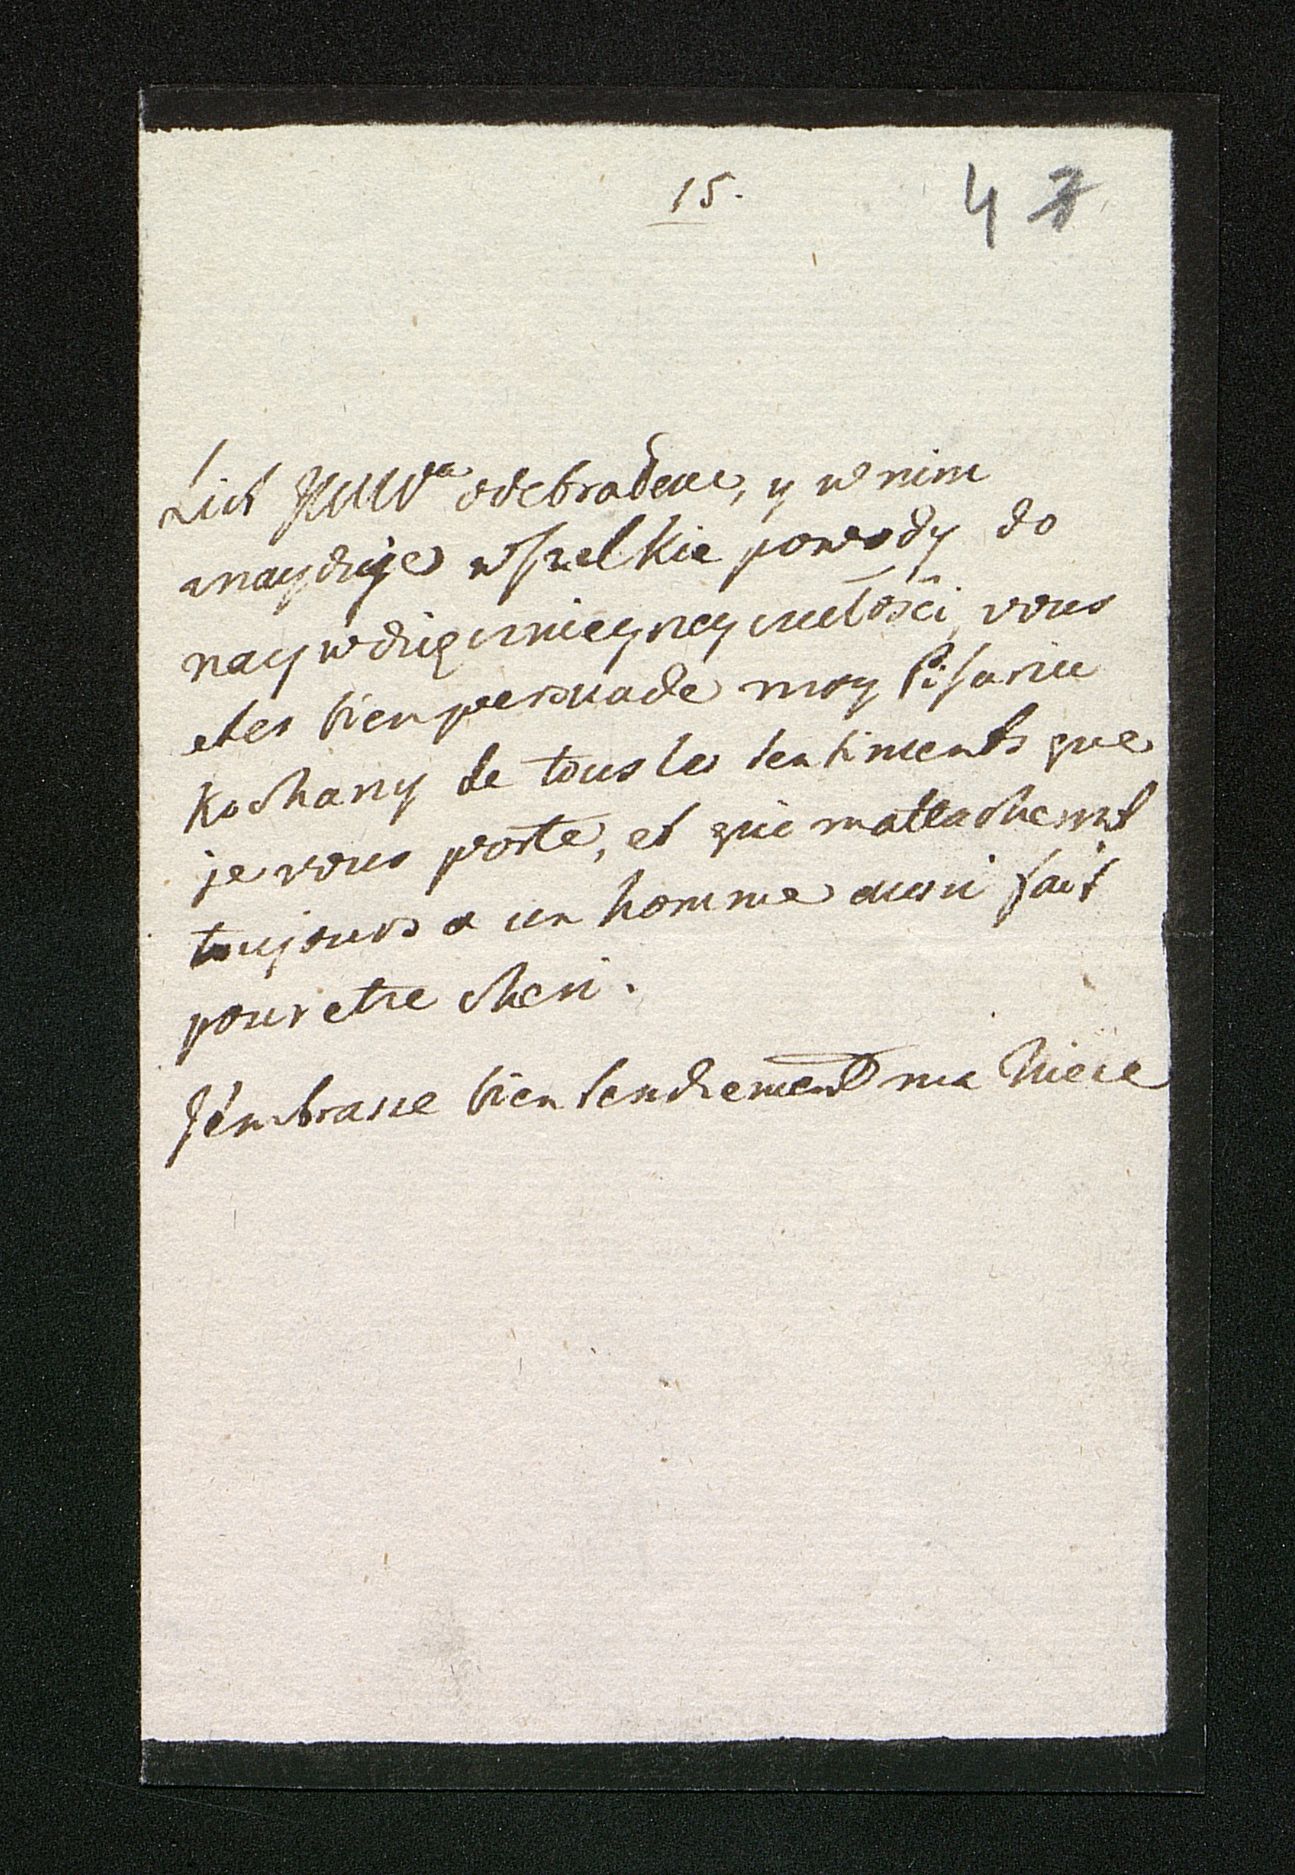 15.
4 7
List JWWPa odebrałem, y w nim
znayduję wszelkie powody do
naywdzięcznieyszey czułości, vous
etes bien persuade moy Pisarzu
Kochany de tous les sentiments que
je vous porte, et qui mattachemt
toujours a un homme aussi fait
pour etre cheri.
J'embrasse bien tendrement ma Niece